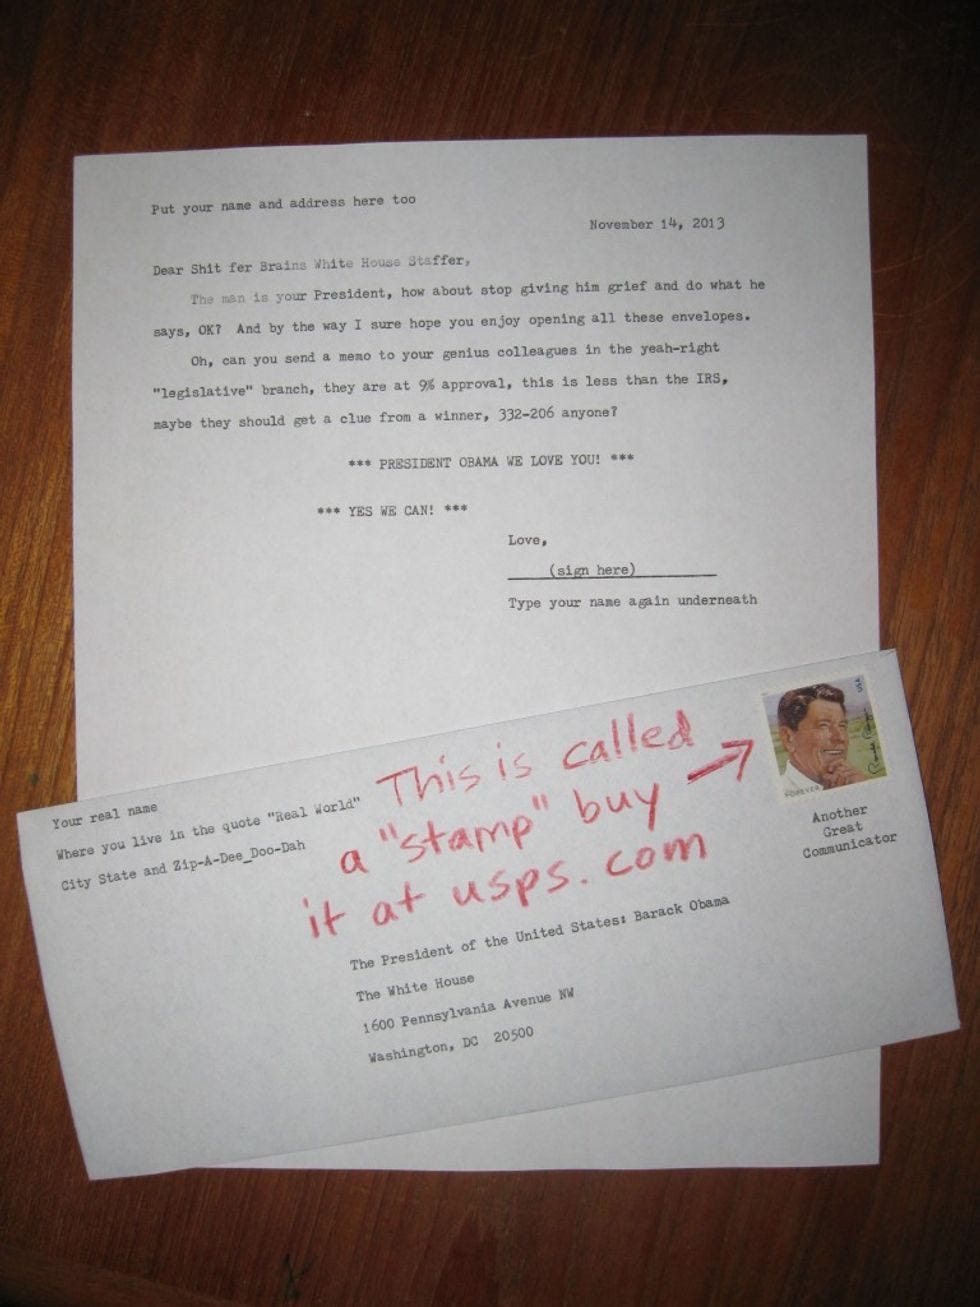 Put your name and address here too
November 14, 2013
Dear Shit fer Brains White House Staffer,
The man is your President, how about stop giving him grief and do what he
says, OK? And by the way I sure hope you enjoy opening all these envelopes.
Oh, can you send a memo to your genius colleagues in the yeah-right
"legislative" branch, they are at 9% approval, this is less than the IRS,
maybe they should get a clue from a winner, 332-206 anyone?
*** PRESIDENT OBAMA WE LOVE YOU! ***
*** YES WE CAN! ***
Love,
(sign here)
Type your name again underneath
Your real name
Where you live in the quote "Real World"
City State and Zip-A-Dee_Doo-Dah
This is called
a "stamp" buy
it at usps.com
USA
FOREVER
Another
Great
Communicator
The President of the United States: Barack Obama
The White House
1600 Pennsylvania Avenue NW
Washington, DC 20500